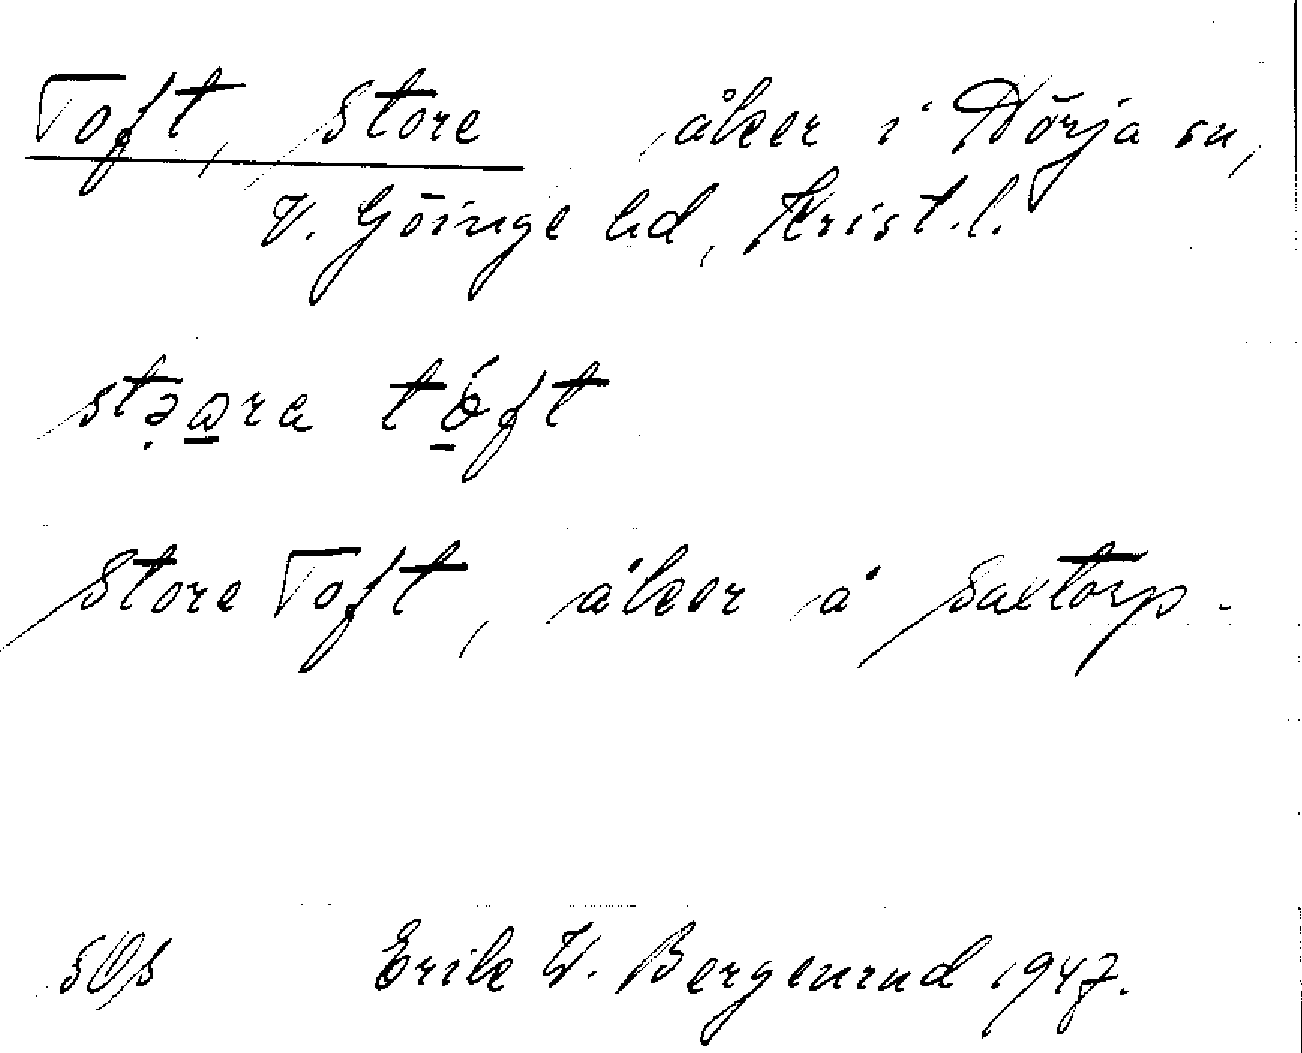 Toft, Store åker i Nörja sn,
V. Göinge hd, Krist. l.
stə̣a̱ra tó̱ft
Store Toft, åker å Saxtorp.
Erik W. Bergenrud 1947.